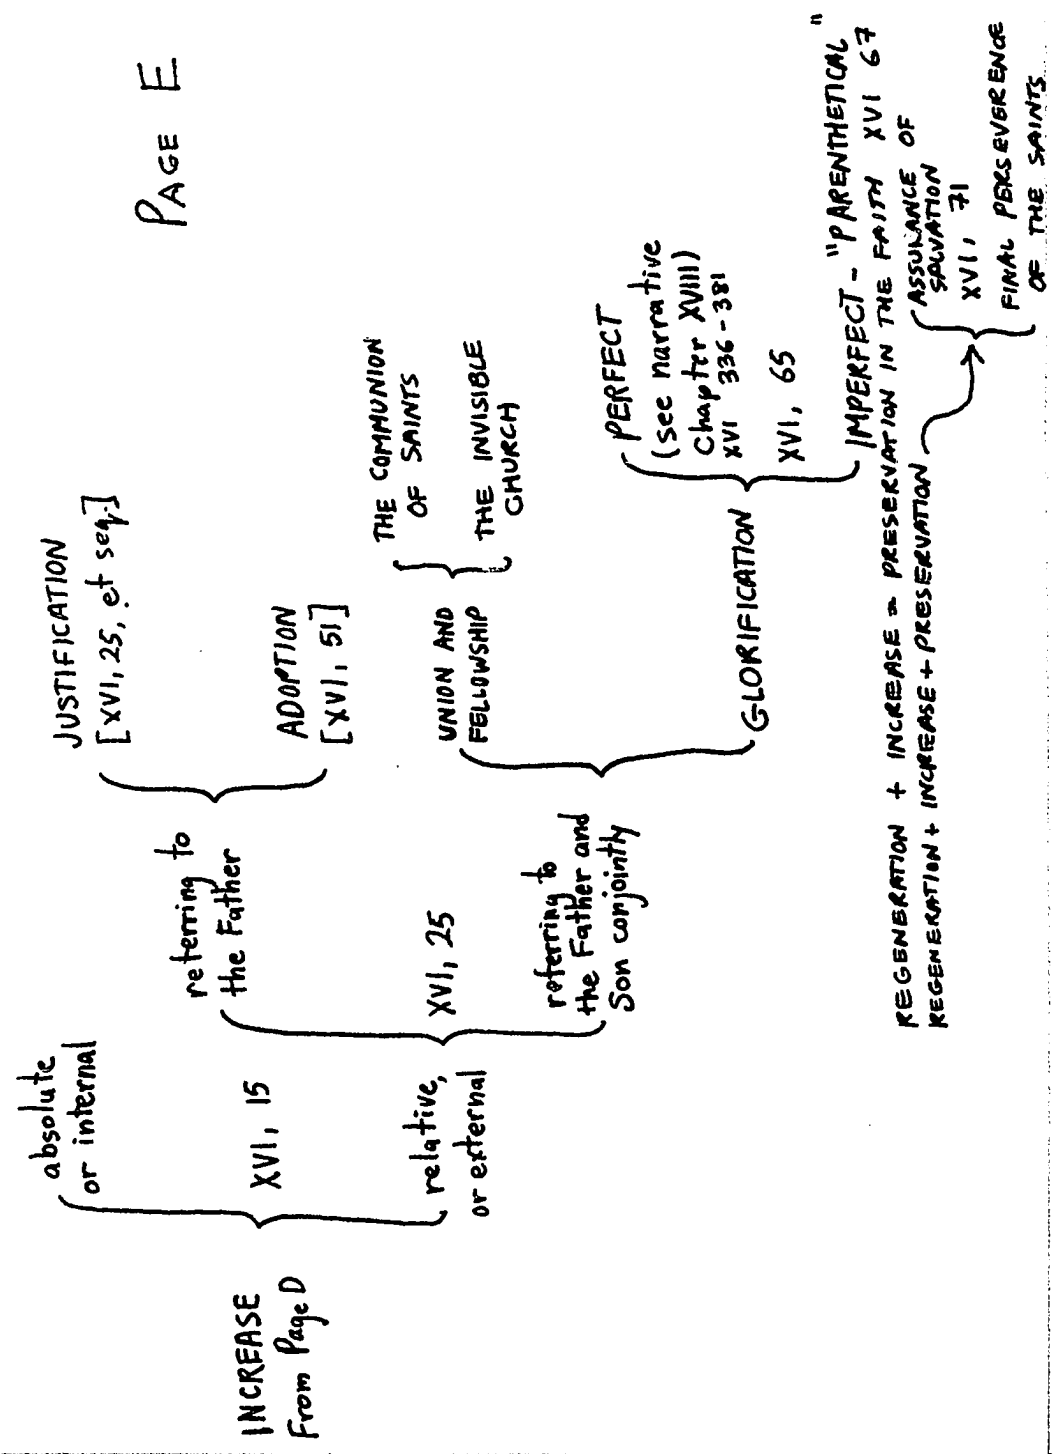 PAGE E
INCREASE
From Page D
absolute
or internal
XVI, 15
relative,
or external
referring to
the Father
XVI, 25
referring to
the Father and
Son conjointly
JUSTIFICATION
[XVI, 25, et seq.]
ADOPTION
[XVI, 51]
UNION AND
FELLOWSHIP
THE COMMUNION
OF SAINTS
THE INVISIBLE
CHURCH
GLORIFICATION
PERFECT
(see narrative
Chapter XVIII)
XVI 336-381
XVI, 65
IMPERFECT - "PARENTHETICAL"
REGENERATION + INCREASE = PRESERVATION IN THE FAITH XVI 67
REGENERATION + INCREASE + PRESERVATION
ASSURANCE OF
SALVATION
XVI, 71
FINAL PERSEVERENCE
OF THE SAINTS